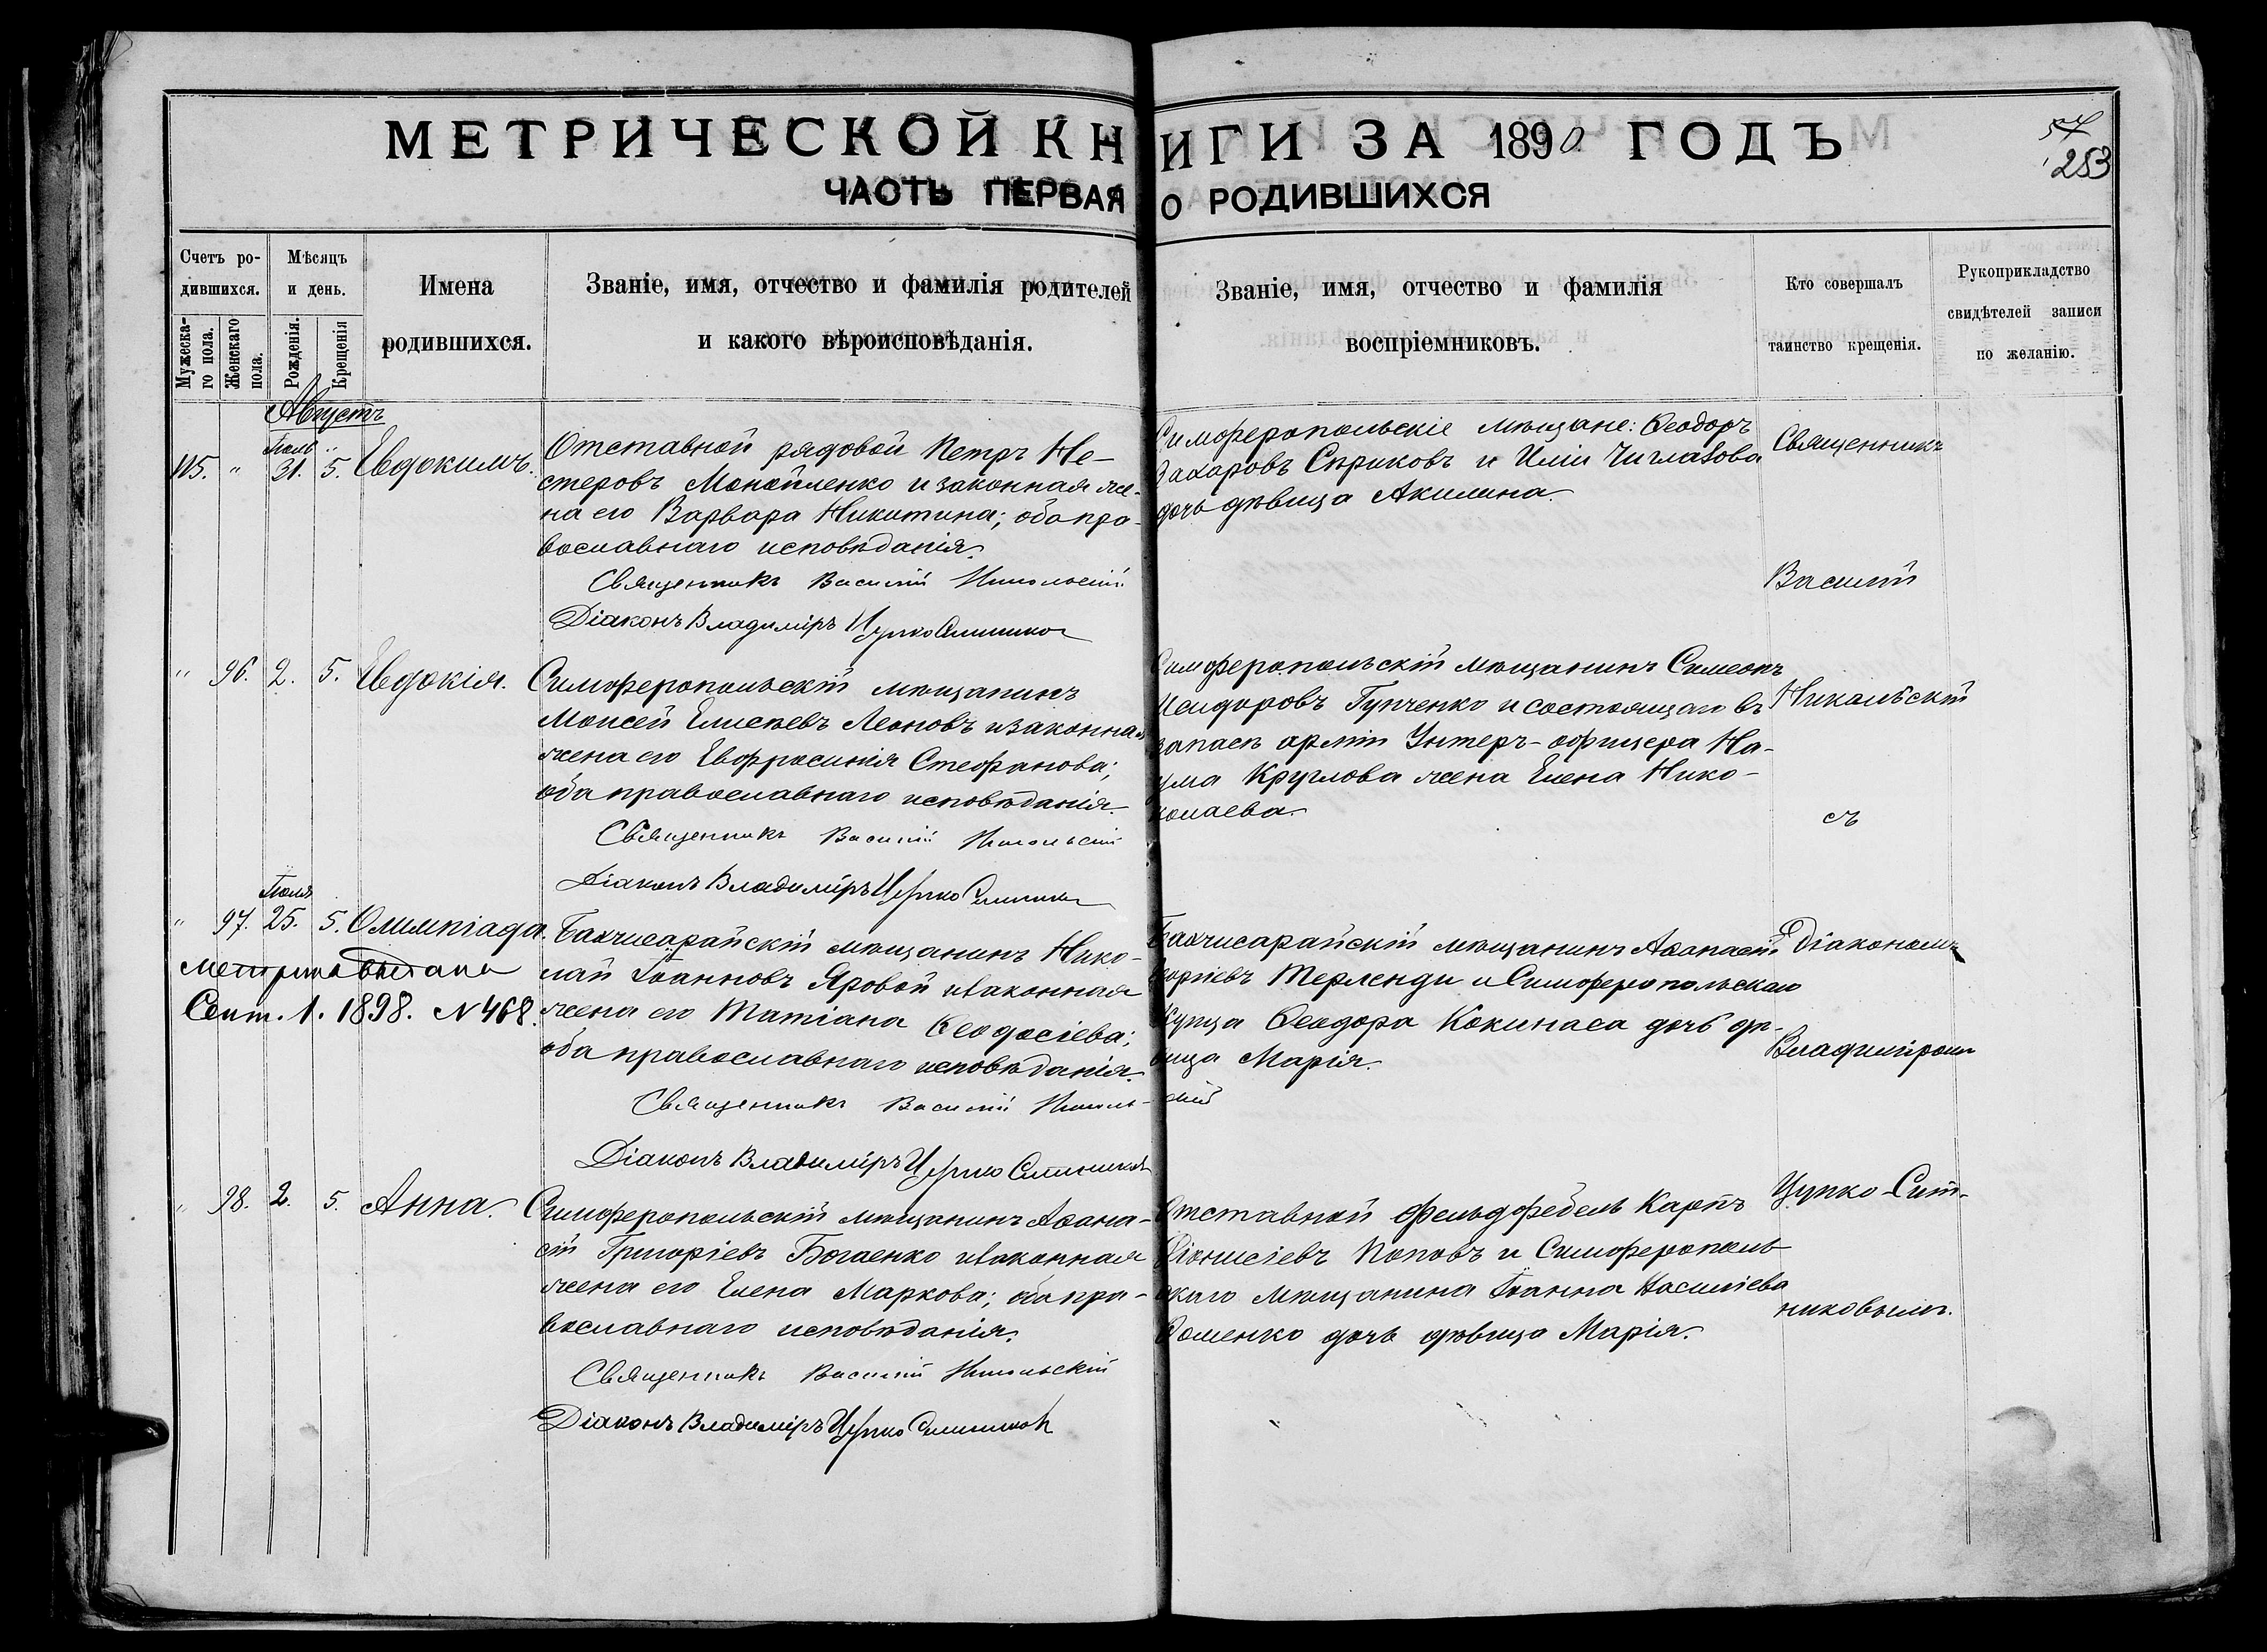 МЕТРИЧЕСКОЙ КНИГИ ЗА 1890 ГОДЪ
ЧАСТЬ ПЕРВАЯ О РОДИВШИХСЯ
57
253
Счетъ ро-
дившихся.
Мужеска-
го пола.
Женскаго
пола.
Мѣсяцъ
и день.
Рожденія.
Крещенія
Имена
родившихся.
Званіе, имя, отчество и фамилія родителей
и какого вѣроисповѣданія.
Званіе, имя, отчество и фамилія
воспріемниковъ.
Кто совершалъ
таинство крещенія.
Рукоприкладство
свидѣтелей записи
по желанію.
Августъ
Іюль "
115. " 31. 5. Евдокимъ.
Отставной рядовой Петръ Не-
стеровъ Манойленко и законная же-
на его Варвара Никитина; оба пра-
вославнаго исповѣданія.
Священникъ Василій Никольскій
Діаконъ Владиміръ Цупко Ситников
Симферопольскіе мѣщане: Ѳеодоръ
Захаровъ Сприковъ и Иліи Чиглазова
дочь дѣвица Акилина.
" 96. 2. 5. Евдокія.
Симферопольскій мѣщанинъ
Моисей Елисѣевъ Леоновъ и законная
жена его Евфросинія Стефанова;
оба православнаго исповѣданія.
Священникъ Василій Никольскій
Діаконъ Владиміръ Цупко Ситников
Симферопольскій мѣщанинъ Симеонъ
Исидоровъ Гупченко и состоящаго въ
запасѣ арміи Унтеръ-офицера На-
ума Круглова жена Елена Нико-
колаева.
Іюля
" 97. 25. 5. Олимпіада.
Метрика выдана
Сент. 1. 1898. N 468.
Бахчисарайскій мѣщанинъ Нико-
лай Іоанновъ Яровой и законная
жена его Татіана Ѳеодосіева;
оба православнаго исповѣданія.
Священникъ Василій Николь-скій
Діаконъ Владиміръ Цупко Ситниковъ
Бахчисарайскій мѣщанинъ Аѳанасій
Георгіевъ Терленди и Симферопольскаго
Купца Ѳеодора Кокинаса дочь дѣ-
вица Марія.
" 98. 2. 5. Анна.
Симферопольскій мѣщанинъ Аѳана-
сій Григоріевъ Богаенко и законная
жена его Елена Маркова; оба пра-
вославнаго исповѣданія.
Священникъ Василій Никольскій
Діаконъ Владиміръ Цупко Ситников
Отставной фельдфебель Карпъ
Діонисіевъ Поповъ и Симферополь
скаго мѣщанина Іоанна Василіева
Фоменко дочь дѣвица Марія.
Священникъ
Василій
Никольскій
съ
Діакономъ
Владиміромъ
Цупко-Сит-
никовымъ.